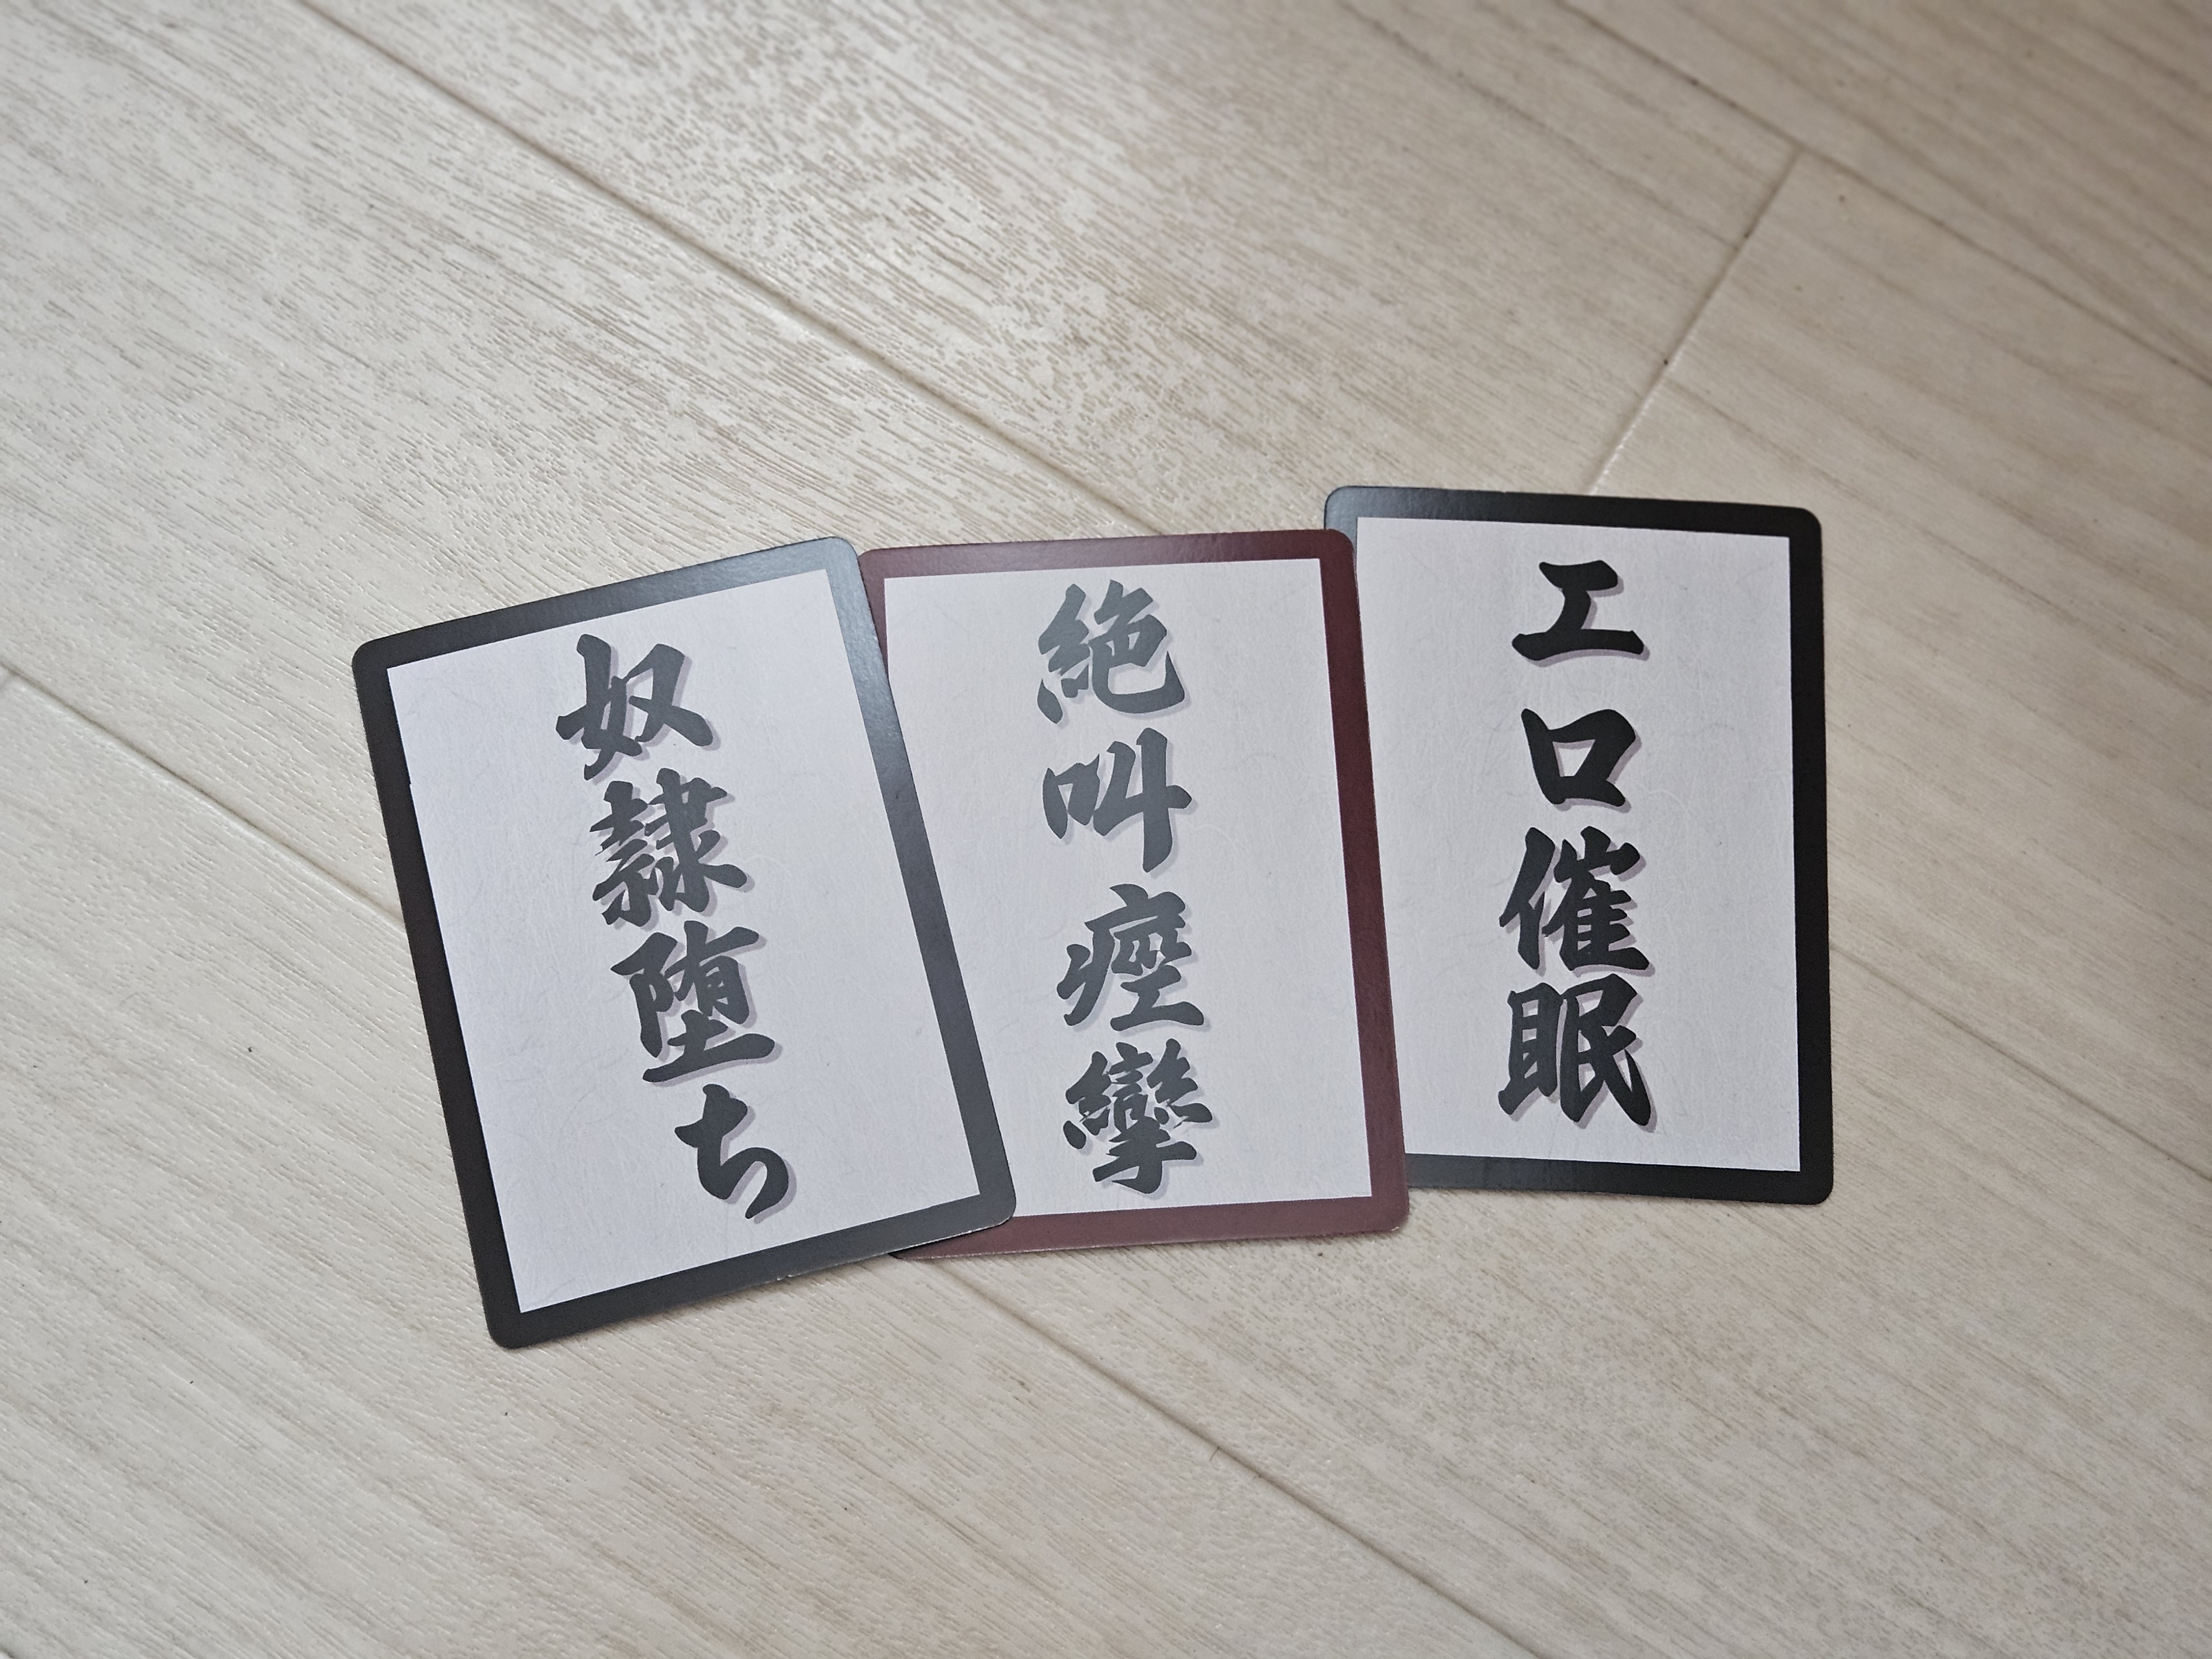 奴隷堕ち
絶叫痙攣
エロ催眠